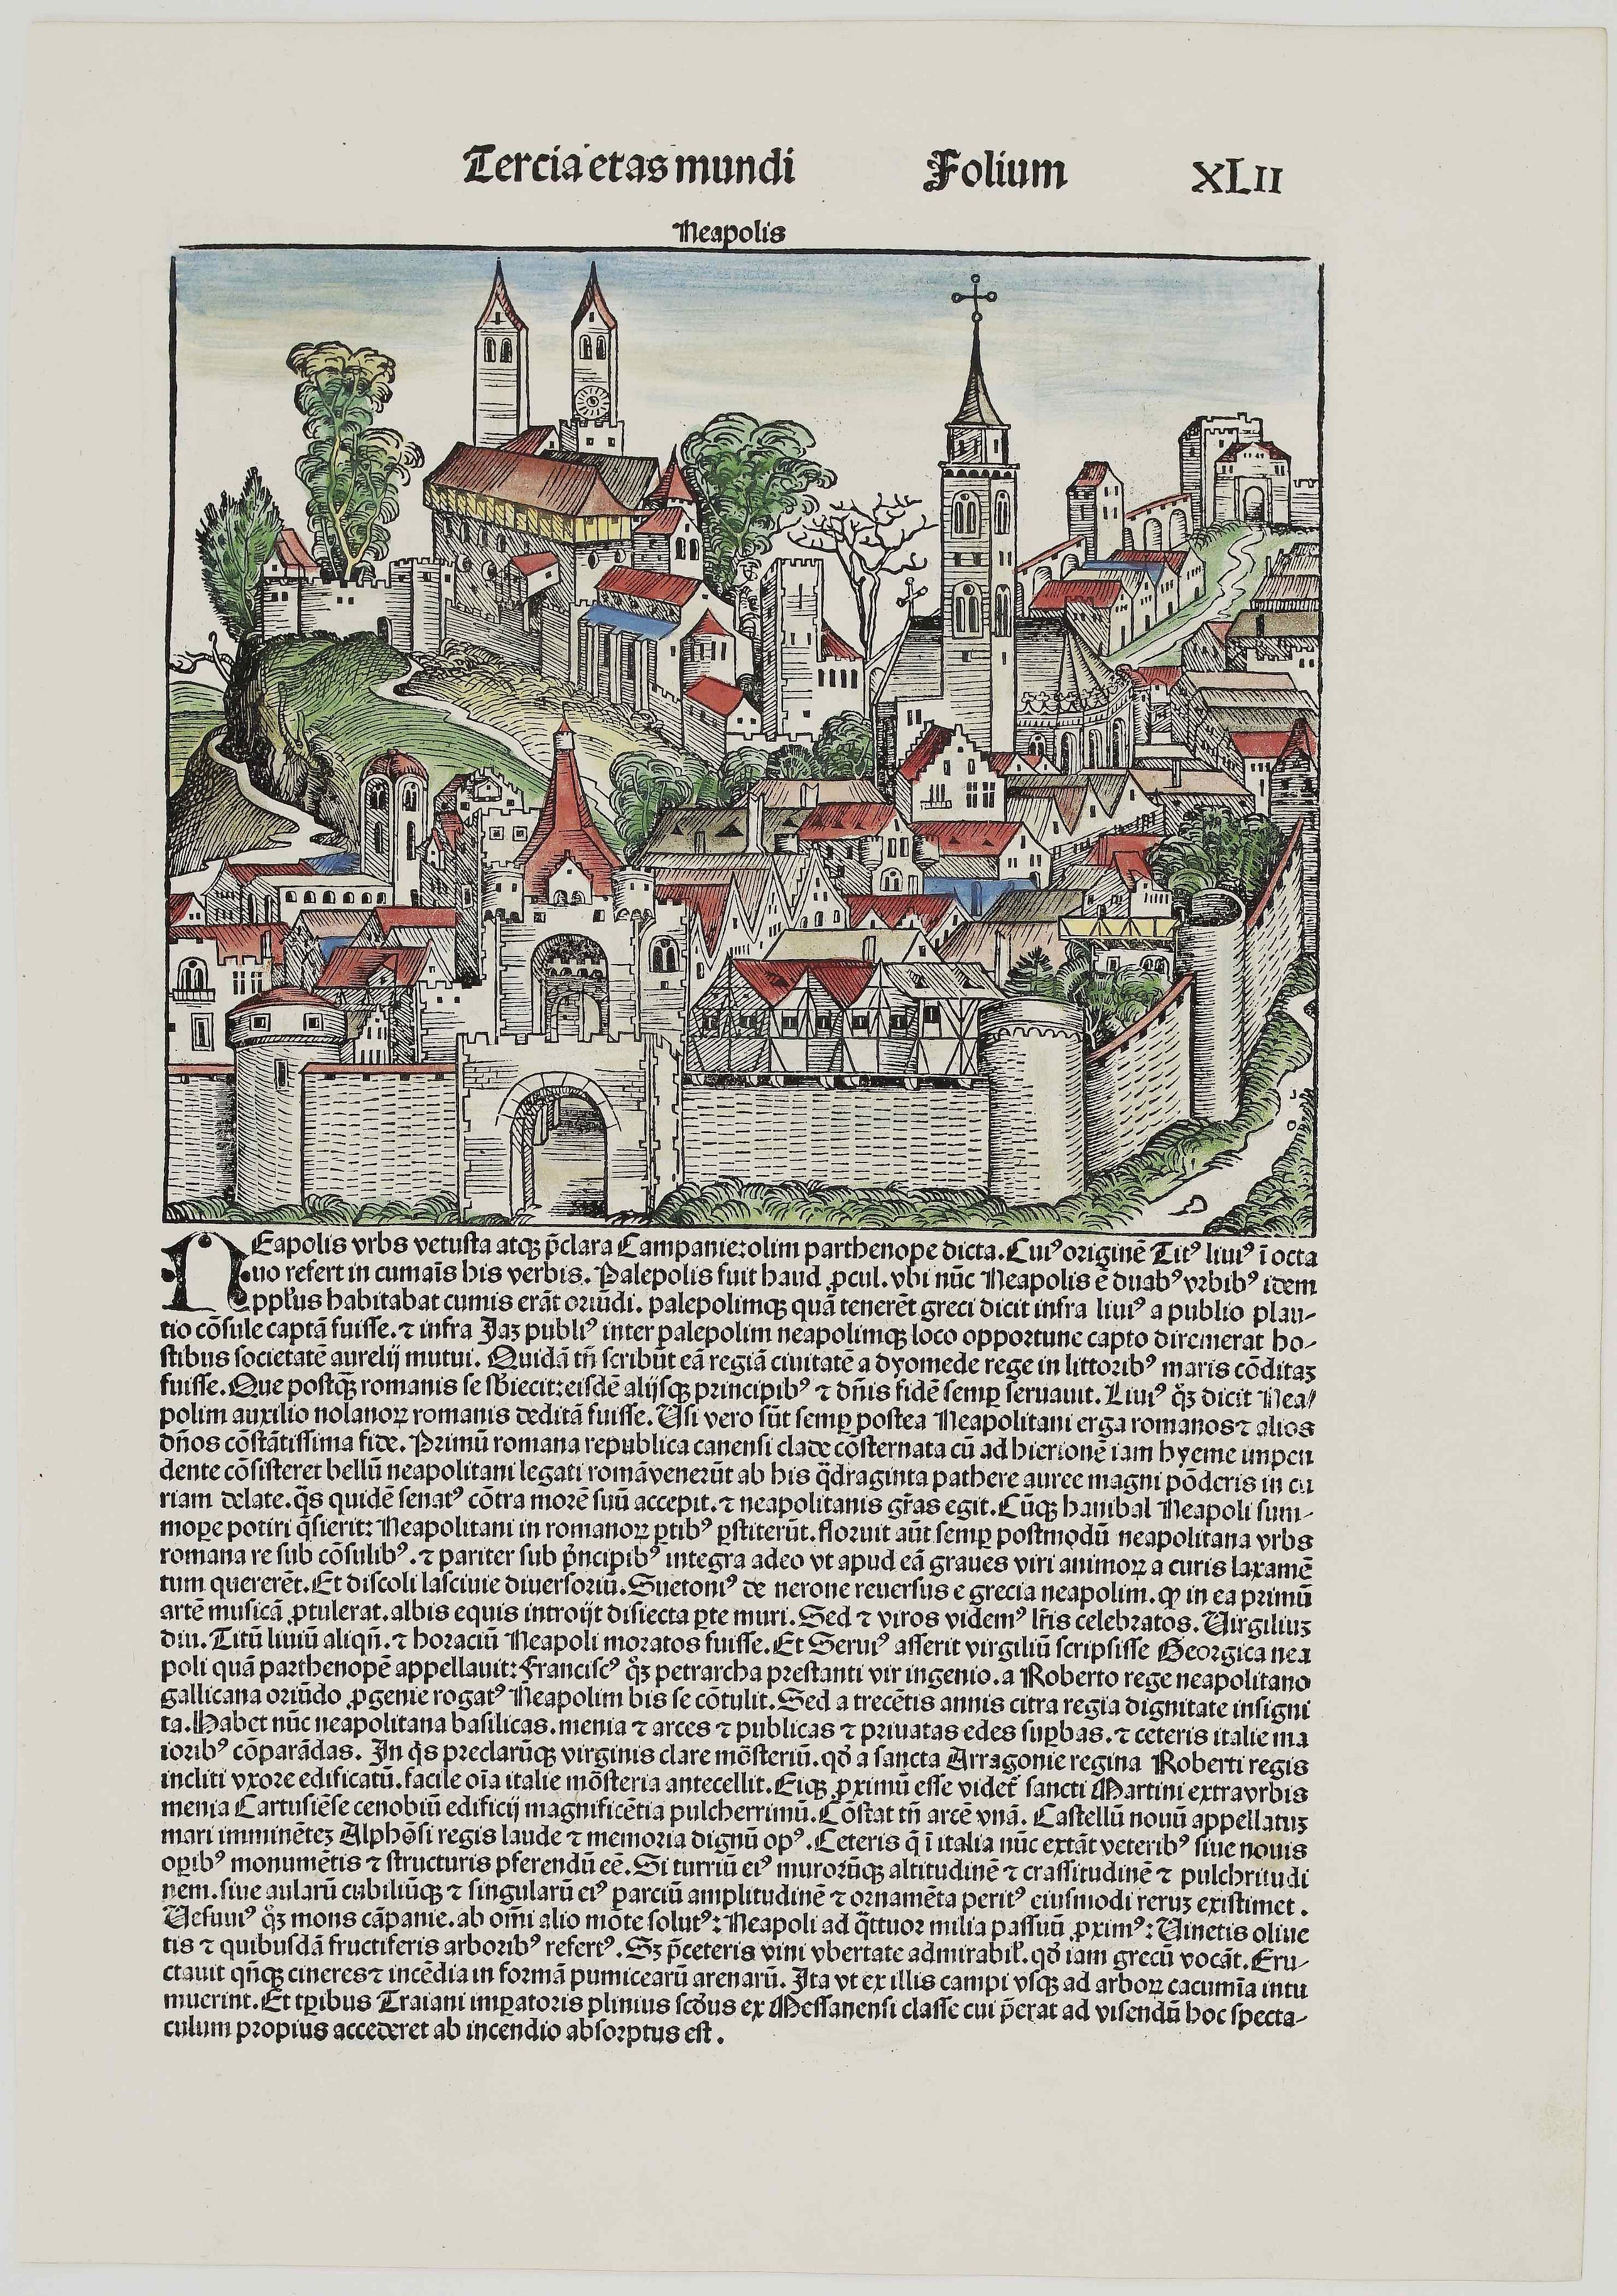 Tercia etas mundi Folium XLII
Neapolis
NEapolis vrbs vetusta atqꝫ p̄clara Campanie: olim parthenope dicta. Cuiꝰ originē Titꝰ liuiꝰ ī octa
uo refert in cumaīs his verbis. Palepolis fuit haud ꝓcul. vbi nūc Neapolis ē duabꝰ vrbibꝰ idem
ppl̄us habitabat cumis erāt oriūdi. palepolimqꝫ quā tenerēt greci dicit infra liuiꝰ a publio plau-
tio cōsule captā fuisse. ⁊ infra Jaꝫ publiꝰ inter palepolim neapolimqꝫ loco opportune capto diremerat ho-
stibus societatē aurelij mutui. Quidā tn̄ scribūt eā regiā ciuitatē a dyomede rege in littoribꝰ maris cōditaꝫ
fuisse. Que postqꝫ̄ romanis se sb̄iecit: eisdē alijsqꝫ principibꝰ ⁊ dn̄is fidē semꝑ seruauit. Liuiꝰ qͦꝫ dicit Nea/
polim auxilio nolanoꝝ romanis deditā fuisse. Usi vero sūt semꝑ postea Neapolitani erga romanos ⁊ alios
dn̄os cōstātissima fide. Primū romana republica canensi clade cōsternata cū ad hierionē iam hyeme impen
dente cōsisteret bellū neapolitani legati romā venerūt ab his q̄draginta pathere auree magni pōderis in cu
riam delate. q̄s quidē senatꝰ cōtra morē suū accepit. ⁊ neapolitanis gr̄as egit. Cūqꝫ hanibal Neapoli sum-
moꝑe potiri q̄sierit: Neapolitani in romanoꝝ ꝑtibꝰ ꝑstiterūt. floruit aūt semꝑ postmodū neapolitana vrbs
romana re sub cōsulibꝰ. ⁊ pariter sub p̄ncipibꝰ integra adeo vt apud eā graues viri animoꝝ a curis laxamē
tum quererēt. Et discoli lasciuie diuersoriū. Suetoniꝰ de nerone reuersus e grecia neapolim. ꝙ in ea primū
artē musicā ꝓtulerat. albis equis introijt disiecta ꝑte muri. Sed ⁊ viros videmꝰ lr̄is celebratos. Uirgiliuꝫ
diu. Titū liuiū aliqn̄. ⁊ horaciū Neapoli moratos fuisse. Et Seruiꝰ asserit virgiliū scripsisse Georgica nea
poli quā parthenopē appellauit: Franciscꝰ qͦꝫ petrarcha prestanti vir ingenio. a Roberto rege neapolitano
gallicana oriūdo ꝓgenie rogatꝰ Neapolim bis se cōtulit. Sed a trecētis annis citra regia dignitate insigni
ta. Habet nūc neapolitana basilicas. menia ⁊ arces ⁊ publicas ⁊ priuatas edes suꝑbas. ⁊ ceteris italie ma
ioribꝰ cōparādas. In q̄s preclarūqꝫ virginis clare mōsteriū. qd̄ a sancta Arragonie regina Roberti regis
incliti vxore edificatū. facile oīa italie mōsteria antecellit. Eiqꝫ ꝓximū esse videt᷑ sancti Martini extra vrbis
menia Cartusiēse cenobiū edificij magnificētia pulcherrimū. Cōstat tn̄ arcē vnā. Castellū nouū appellatuꝫ
mari imminēteꝫ Alphōsi regis laude ⁊ memoria dignū opꝰ. Ceteris q̄ ī italia nūc extāt veteribꝰ siue nouis
oꝑibꝰ monumētis ⁊ structuris pferendū eē. Si turriū eiꝰ murorūqꝫ altitudinē ⁊ crassitudinē ⁊ pulchritudi
nem. siue aularū cubiliūqꝫ ⁊ singularū eiꝰ parciū amplitudinē ⁊ ornamēta peritꝰ eiusmodi reruꝫ existimet.
Uesuuiꝰ qͦꝫ mons cāpanie. ab om̄i alio mōte solutꝰ: Neapoli ad q̄ttuor milia passuū ꝓximꝰ: Uinetis oliue
tis ⁊ quibusdā fructiferis arboribꝰ refertꝰ. Sꝫ p̄ceteris vini vbertate admirabil̄. qd̄ iam grecū vocāt. Eru-
ctauit qn̄qꝫ cineres ⁊ incēdia in formā pumicearū arenarū. Ita vt ex illis campi vsqꝫ ad arboꝝ cacumīa intu
muerint. Et tꝑibus Traiani imꝑatoris plinius scd̄us ex Messanensi classe cui p̄erat ad visendū hoc specta-
culum propius accederet ab incendio absorptus est.